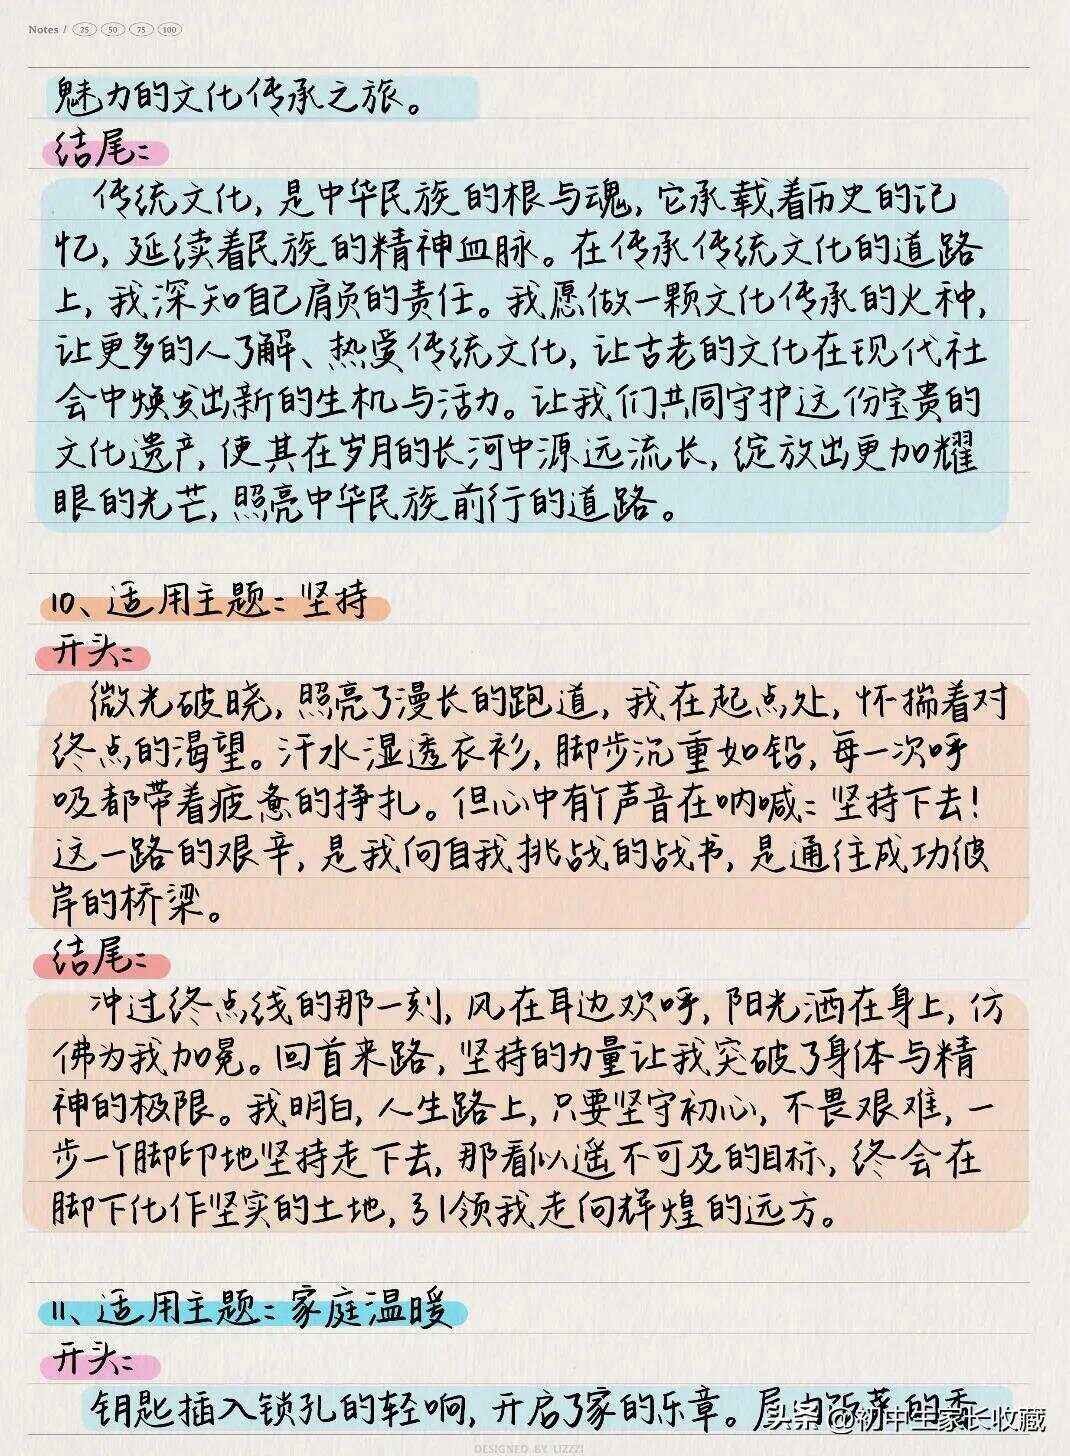 Notes / 25 50 75 100
魅力的文化传承之旅。
结尾：
传统文化，是中华民族的根与魂，它承载着历史的记
忆，延续着民族的精神血脉。在传承传统文化的道路
上，我深知自己肩负的责任。我愿做一颗文化传承的火种，
让更多的人了解、热爱传统文化，让古老的文化在现代社
会中焕发出新的生机与活力。让我们共同守护这份宝贵的
文化遗产，使其在岁月的长河中源远流长，绽放出更加耀
眼的光芒，照亮中华民族前行的道路。
10、适用主题：坚持
开头：
微光破晓，照亮了漫长的跑道，我在起点处，怀揣着对
终点的渴望。汗水湿透衣衫，脚步沉重如铅，每一次呼
吸都带着疲惫的挣扎。但心中有个声音在呐喊：坚持下去！
这一路的艰辛，是我向自我挑战的战书，是通往成功彼
岸的桥梁。
结尾：
冲过终点线的那一刻，风在耳边欢呼，阳光洒在身上，仿
佛为我加冕。回首来路，坚持的力量让我突破了身体与精
神的极限。我明白，人生路上，只要坚守初心，不畏艰难，一
步一个脚印地坚持走下去，那看似遥不可及的目标，终会在
脚下化作坚实的土地，引领我走向辉煌的远方。
11、适用主题：家庭温暖
开头：
钥匙插入锁孔的轻响，开启了家的乐章。屋内饭菜的香
头条 @初中生家长收藏
DESIGNED BY LIZZZI